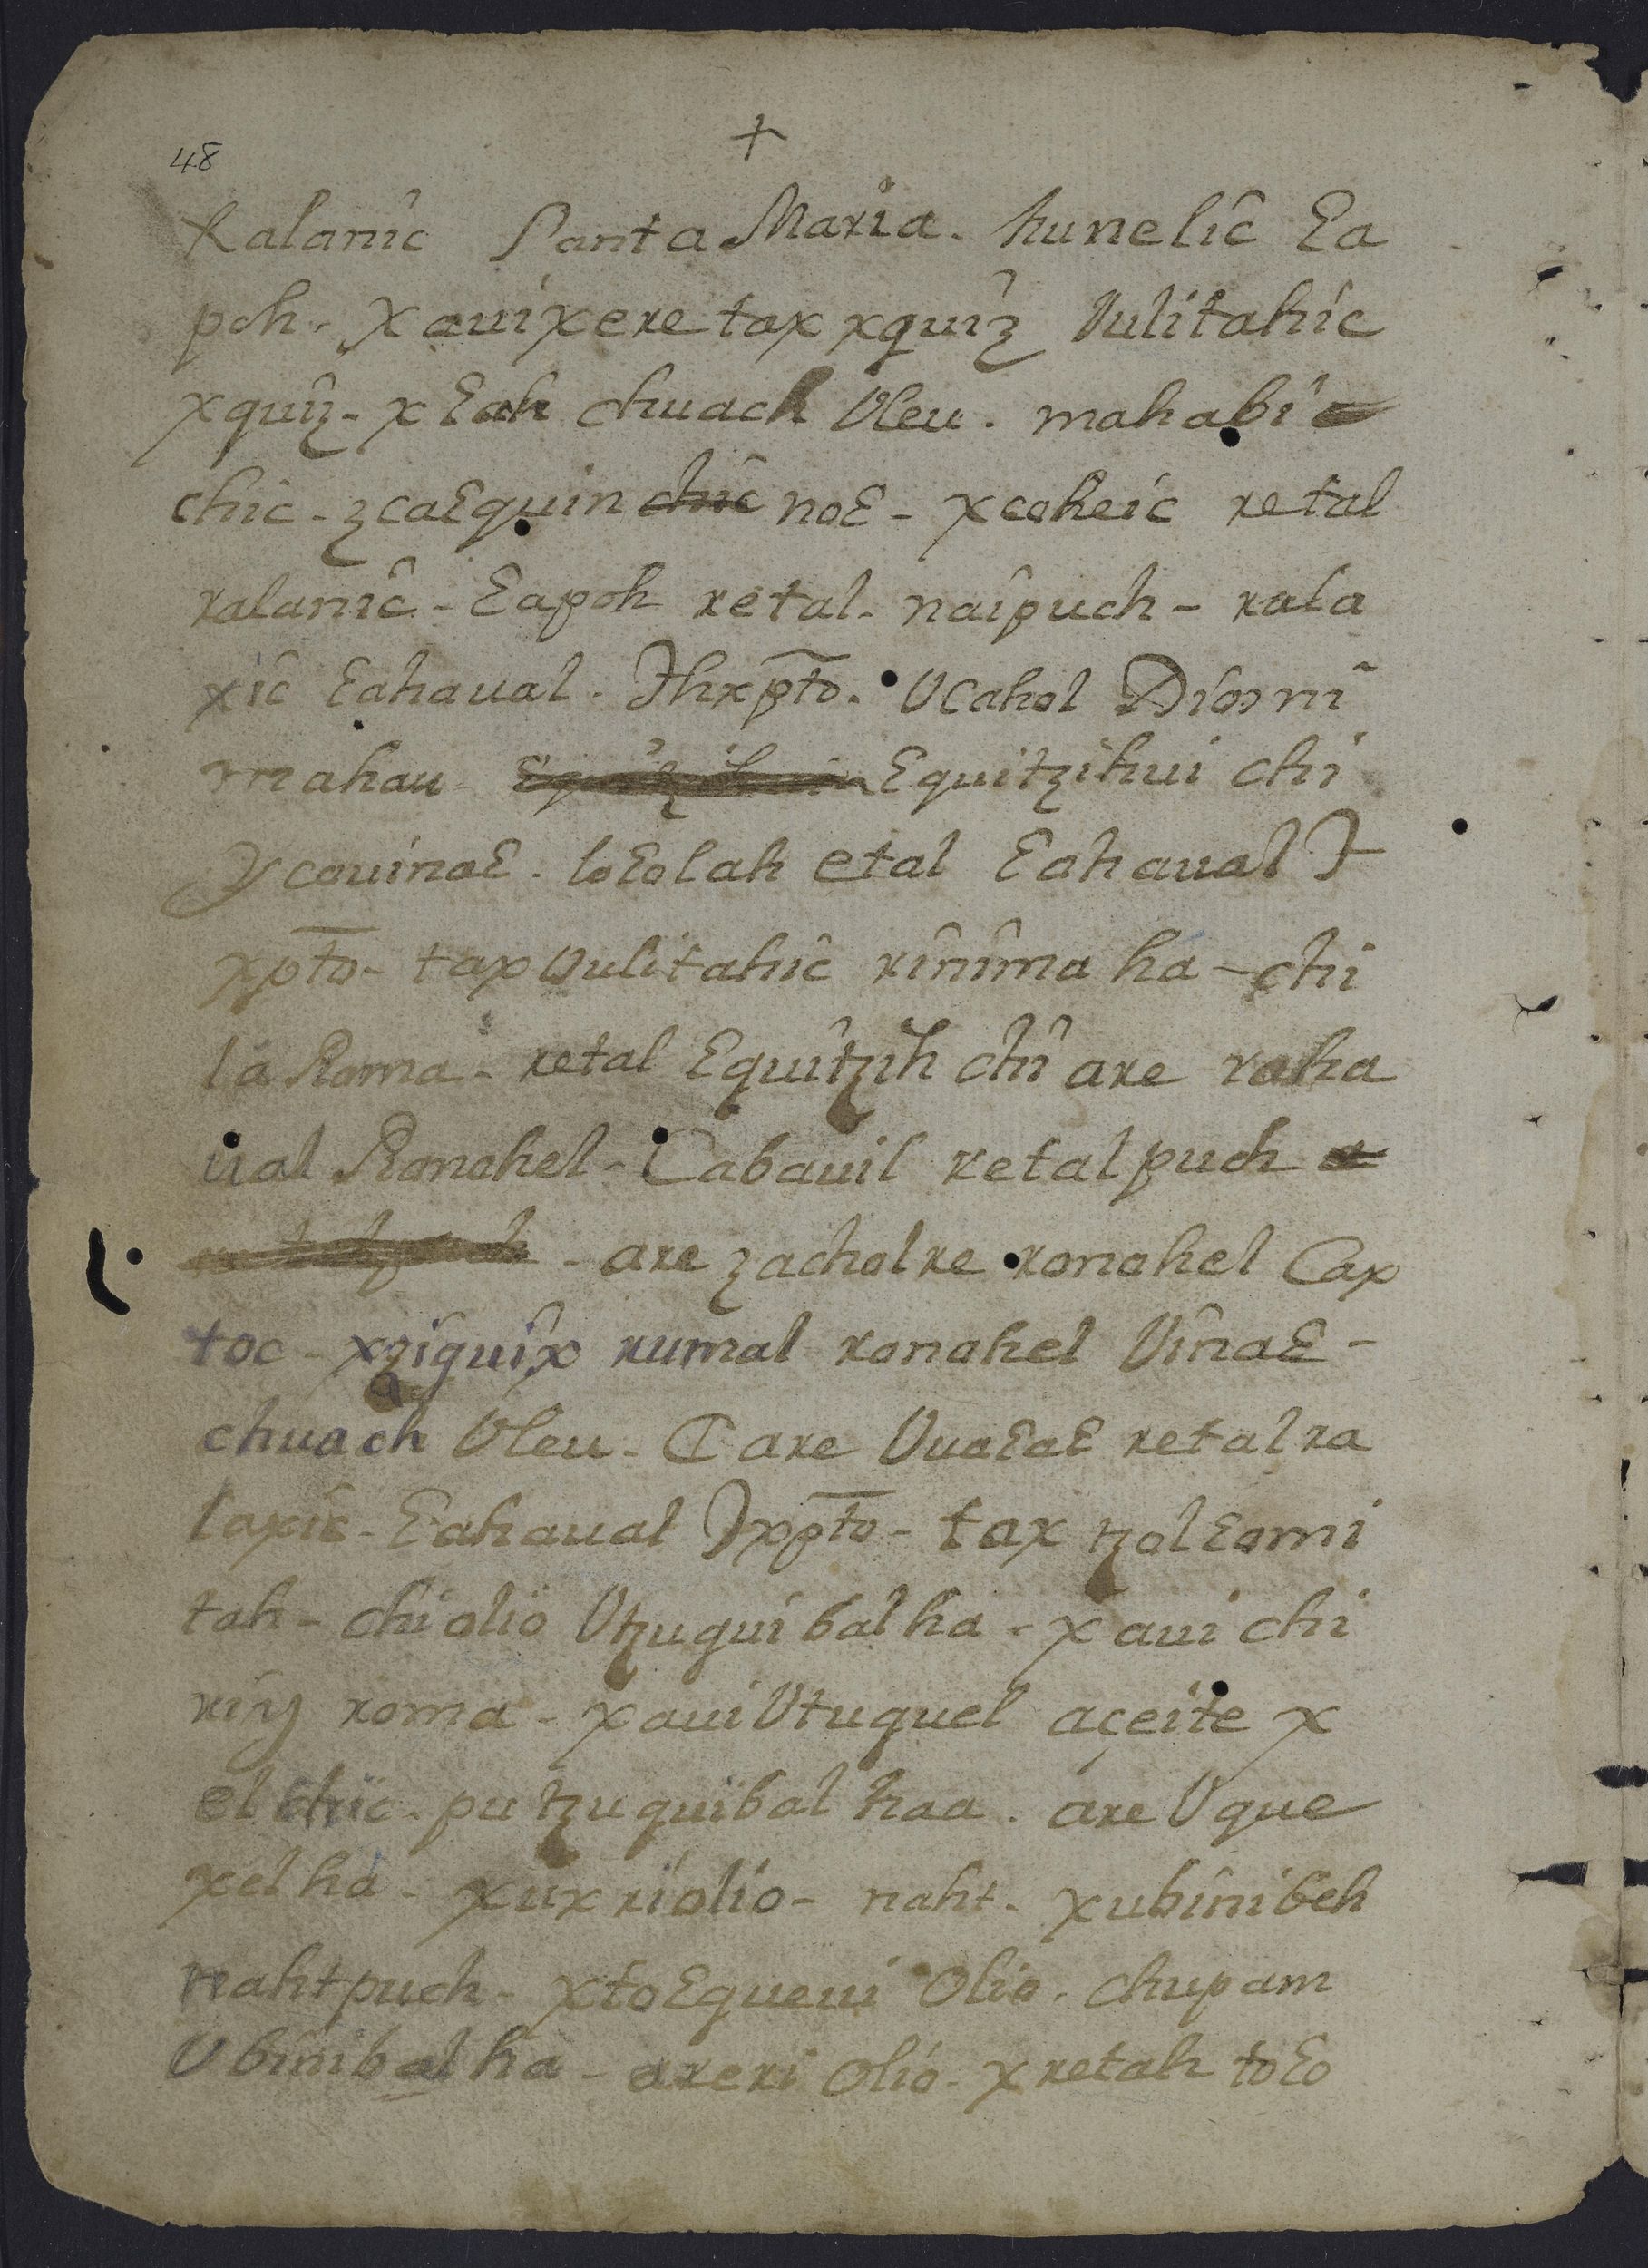 +
48
Ralanic Santa Maria. hunelic Ɛa
poh. Xauixere tax xquiz Vulitahic
xquiz - x Ɛah chuach Vleu. mahabi
chic - zcaƐquin chic noƐ - xcoheic retal
ralanic - Ɛapoh retal. naipuch - rala
xic Ɛahaual. Jhxpto. Ucahol Dios ni
mahau Ɛquitzihui chi
ycouinaƐ. loƐolah etal Ɛahaual J
xpto - tax Vulitahic rinima ha - chi
la Roma - retal Ɛquitzih chi are raha
ual Ronohel - Cabauil retal puch
- are zachol re ronohel Cax
toc - xziquix rumal ronohel VinaƐ -
chuach Vleu - C are VuaƐaƐ retal ra
laxic - Ɛahaual Jxpto - tax tzolƐomi
tah - chi olio Utzuquibal ha - xaui chi
riy roma - xaui Utuquel açeite x
el chic. putzuquibal haa. are Uque
xel ha - xux ri olio - naht. xubinibeh
naht puch - xtoƐqueui Olio. chupam
Ubinibal ha - are ri olio - xretah toƐo